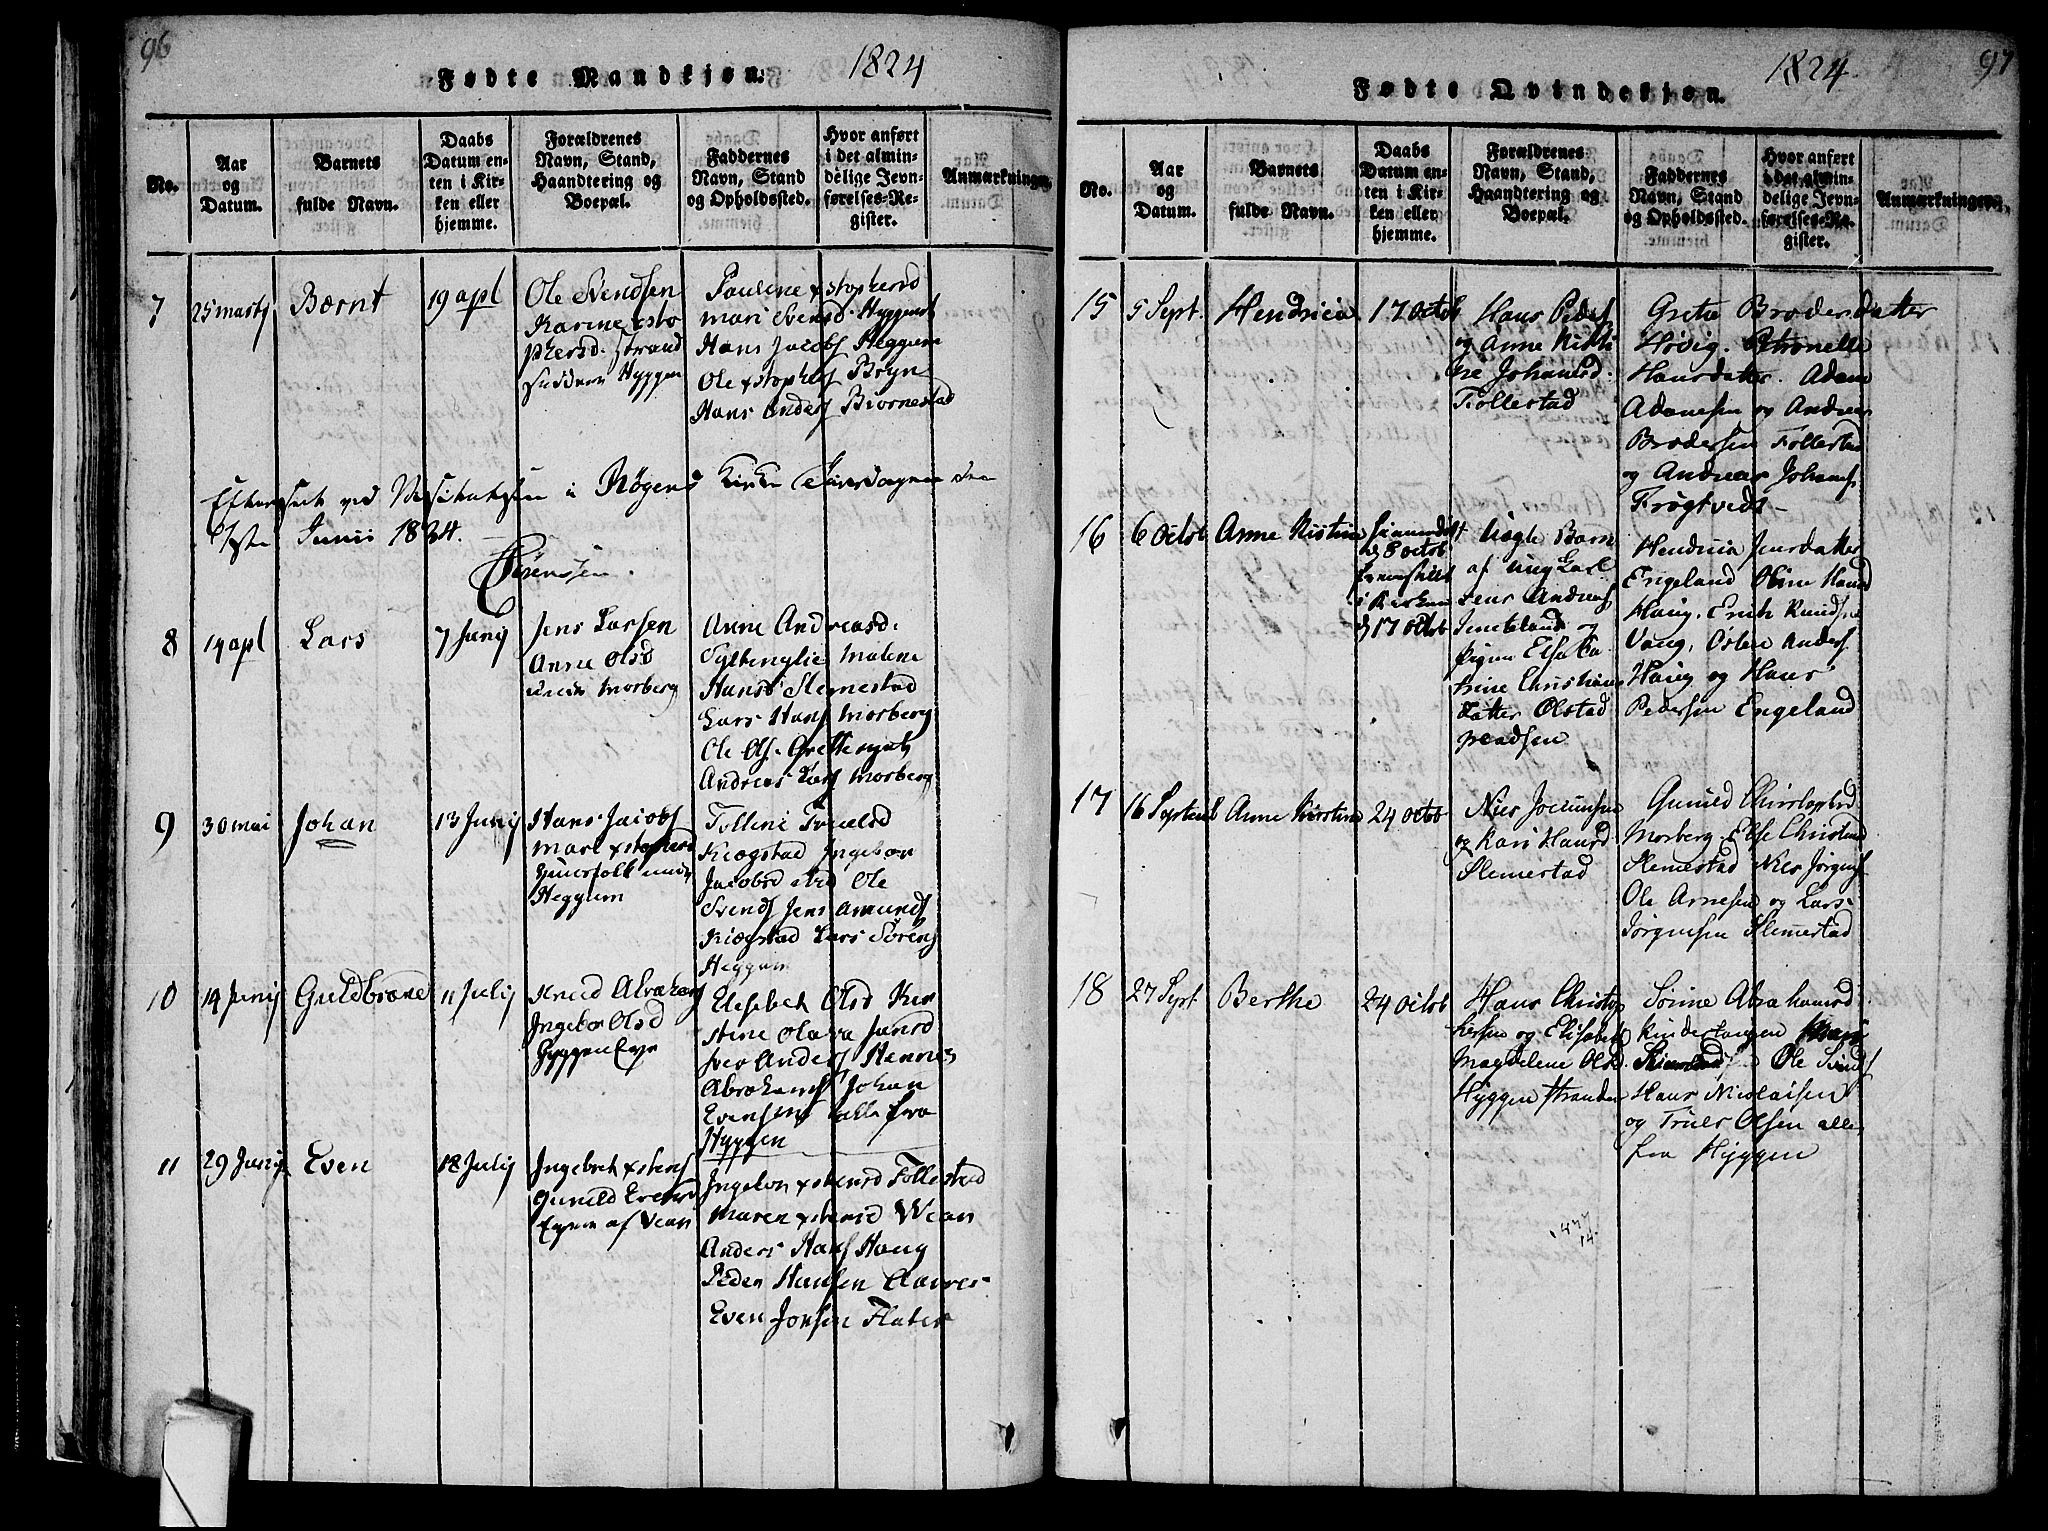 96
Fødte Mandkjøn.
1824
No.
Aar
og
Datum.
Barnets
fulde Navn.
Daabs
Datum en-
ten i Kir-
ken eller
hjemme.
Forældrenes
Navn, Stand,
Haandtering og
Boepæl.
Faddernes
Navn, Stand
og Opholdssted.
Hvor anført
i det almin-
delige Jevn-
førelses-Re-
gister.
Anmærkninger.
7
25 marts
Bærnt
19 apl
Ole Svendsen
Karine xsto
phersd. Strand
Hyggen
Pauline xstophersd
mari Svensd. Hyggen
Hans Jacobs Heggum
Ole xstophers Bryn
Hans Anders Biørnestad
Efterseet ved Visitatsen i Røgens Kirke Tiirsdagen den
1ste Junii 1824.
Sørenssen.
8
19 apl
Lars
7 Junij
Jens Larsen
Anne Olsd
Morberg
Anne Andreasd.
Malene
Hansd Slemestad
Lars Hans Morberg
Ole Ols.
Andreas Lars Morberg
9
30 mai
Johan
13 Junij
Hans Jacobs
mari xstophersd
Huusfolk under
Heggum
Truelsd
Kiøgstad Ingebor
Jacobsd Ole
Svends Jens Amunds
Kiøgstad Lars Sørens
Heggum
10
14 Junij
Guldbrane
11 Julij
Knud Abraham
Ingebor Olsd
Hyggen Eye
Elisabeth Olsd Kir
stine Olava Jensd
Iver Anders Hannes
Abrahams Johan
Evensen alle fra
Hyggen
11
29 Junij
Even
18 Julij
Ingebret xstens
Gunild Evensd
af Vean
Ingebor xstensd Follestad
Maren xstensd Wean
Anders Hans Haug
Peder Hansen Aaures
Even Jonsen Flater
97
Fødte Qvindekjøn.
1824.
No.
Aar
og
Datum.
Barnets
fulde Navn.
Daabs
Datum en-
ten i Kir-
ken eller
hjemme.
Forældrenes
Navn, Stand,
Haandtering og
Boepæl.
Faddernes
Navn, Stand
og Opholdssted.
Hvor anført
i det almin-
delige Jevn-
førelses-Re-
gister.
Anmærkninger.
15
5 Sept.
Hendricæ
17 octob
Hans Peders
og Anne Kisti
ne Johansd.
Follestad
Grethe Brodersdatter
Høvig. Petronelle
Hansdatter. Adam
Adamsen og Andreas
Brodersen Follestad
og Andreas Johans.
Frøgtvedt
16
6 octob
Anne Kistine
hiemmedøbt
d 8 octob
fremstillt
i Kirken
d 17 octob
Uægte Barn
af ung Karl
Jens Andreas
og
pigen Else Ca
trine Christians
datter Olstad
Hendricia Jensdatter
Engeland Oline Hansd
Haug, Erich Knudsen
Vang, Osten Anders.
Haug og Hans
Pedersen Engeland
17
16 Septemb
Anne Kirstine
24 octob
Niels Jocumsen
og Kari Hansd.
Slemestad
Gunild Christophd
Morberg, Else Christensd
Slemestad Niels Jørgens
Ole Arnesen og Lars
Jørgensen Slemestad
18
27 Sept.
Berthe
24 octob
Hans Christop
hersen og Elisabeth
Magdelene Olsd.
Hyggen stranden
Sønne Abrahamsd
Kindertangen
Ole Svends
Hans Nicolaisen
og Truls Olsen alle
fra Hyggen
477
14.